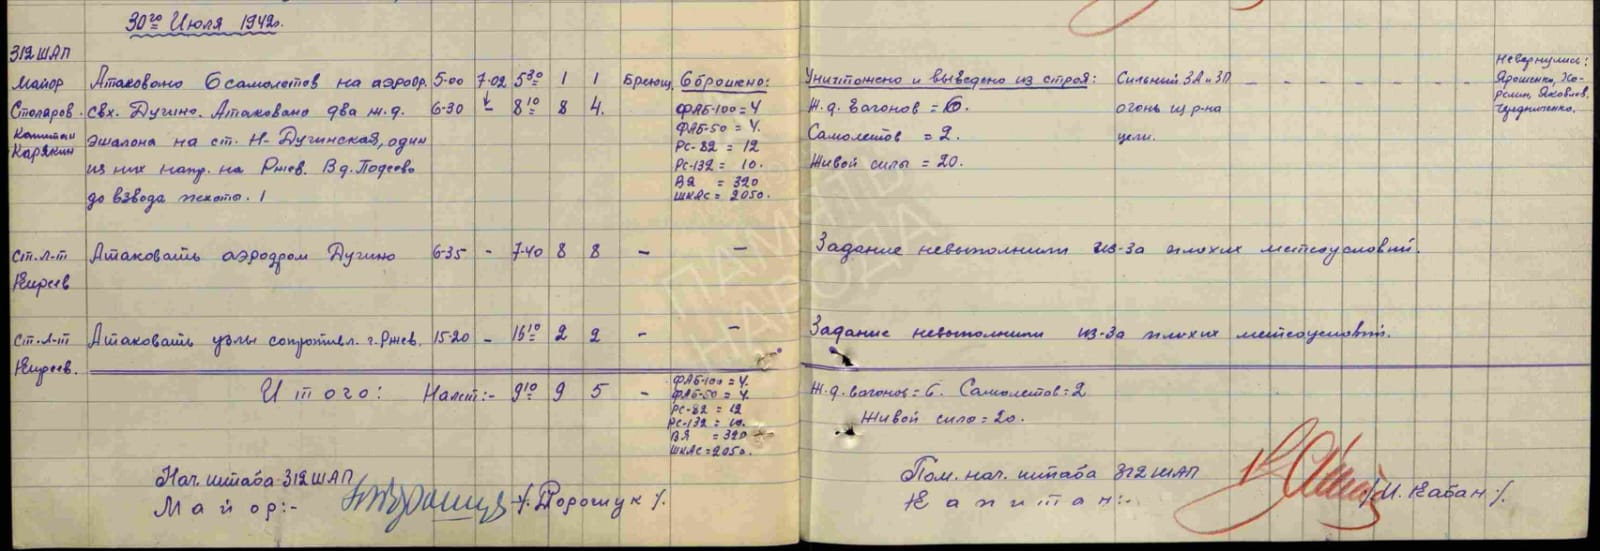 30го Июля 1942г.
312 ШАП
Майор Атаковано 6 самолетов на аэродр. 5-00 7-02 5 30 1 1 Бреющ. Сброшено: Уничтожено и выведено из строя: Сильный ЗА и ЗП Невернулись:
Столяров свх. Дугино. Атаковано два ж.д. 6-30 8 10 8 4. ФАБ-100 = 4 Ж.д. вагонов = 6. огонь из р-на Ярошенко,
Капитан Карякин эшалона на ст. Н-Дугинская, один ФАБ-50 = 4. Самолетов = 2. цели. Яковлев,
из них напр. на Ржев. В д. РС-82 = 12 Живой силы = 20.
до взвода пехоты. РС-132 = 10.
ВЯ = 320
ШКАС = 2050.
Ст. л-т Атаковать аэродром Дугино 6-35 - 7-40 8 8 - - Задание невыполнили из-за плохих метеоусловий.
Киреев
Ст. л-т Атаковать узлы сопротивл. г. Ржев. 15-20 - 16 10 2 2 - - Задание невыполнили из-за плохих метеоусловий.
Киреев.
Итого: 9 10 9 5 - ФАБ-100 = 4. Ж.д. вагонов = 6. Самолетов = 2
ФАБ-50 = 4. Живой силы = 20.
РС-82 = 12
РС-132 = 10.
ВЯ = 320
ШКАС = 2050.
Нач. штаба 312 ШАП Пом. нач. штаба 312 ШАП
Майор:- /Дорощук/. Капитан:- /И. Кабан/.
ПАМЯТЬ
НАРОДА